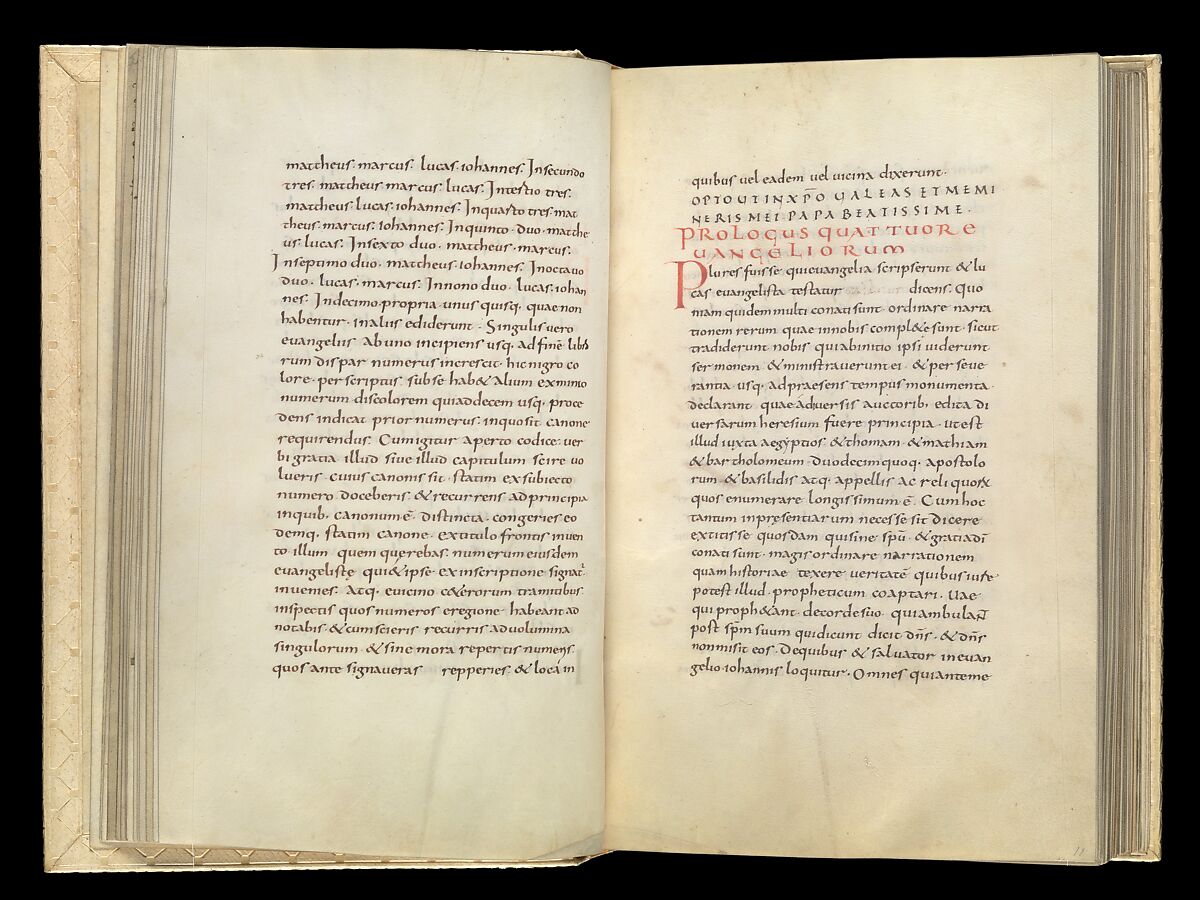 mattheus· marcus· lucas· iohannes· Insecundo
tres· mattheus marcus· lucas· Intertio tres·
mattheus· lucas· iohannes· Inquarto tres· mat
theus· marcus· iohannes· Inquinto· duo· matthe
us· lucas· Insexto duo· mattheus· marcus·
Inseptimo duo· mattheus· iohannes· Inoctauo
duo· lucas· marcus· Innono duo· lucas· iohan
nes· Indecimo· propria· unus quisq· quae non
habentur· inaliis ediderunt· Singulis uero
euangeliis ab uno incipiens usq· ad finē libro
rum dispar numerus increscit· hic nigro co
lore· per scriptus· sub se hab& alium ex minio
numerum discolorem qui ad decem usq· proce
dens indicat prior numerus· inquo sit canone
requirendus· Cum igitur aperto codice· uer
bi gratia· illud siue illud capitulum scire uo
lueris· cuius canonis sit· statim ex subiecto
numero doceberis· & recurrens ad principia
inquib· canonum ē· distincta· congeries eo
demq· statim canone· ex titulo frontis inuen
to illum quem querebas· numerum eiusdem
euangelistę qui & ipse ex inscriptione signat̄
inuenies· Atq· e uicino c&erorum tramitibus
inspectis quos numeros e regione habeant ad
notabis· & cum scieris recurris ad uolumina
singulorum & sine mora repertis numeris
quos ante signaueras repperies· & loca in
quibus uel eadem uel uicina dixerunt·
OPTO UT IN XP̄O UALEAS ET MEMI
NERIS MEI PAPA BEATISSIME·
PROLOGUS QUATTUOR E
UANGELIORUM
Plures fuisse qui euangelia scripserunt & lu
cas euangelista testatur dicens· Quo
niam quidem multi conati sunt· ordinare narra
tionem rerum quae in nobis compl&e sunt· sicut
tradiderunt nobis qui abinitio ipsi uiderunt
sermonem & ministrauerunt ei· & perseue
rantia usq· ad praesens tempus monumenta
declarant quae a diuersis auctorib· edita di
uersarum heresium fuere principia· ut est
illud iuxta aegyptios· & thomam· & mathiam
& bartholomeum· duodecim quoq· apostolo
rum· & basilidis atq· appellis ac reliquorum
quos enumerare longissimum ē· Cum hoc
tantum inpresentiarum necesse sit dicere
extitisse quosdam qui sine spū· & gratia dī
conati sunt· magis ordinare narrationem
quam historiae texere ueritatē quibus iure
potest illud· propheticum coaptari· Uae
qui proph&ant· de corde suo· qui ambulant
post spm̄ suum qui dicunt dicit dn̄s· & dn̄s
non misit eos· De quibus & saluator in euan
gelio iohannis loquitur· Omnes qui ante me
11